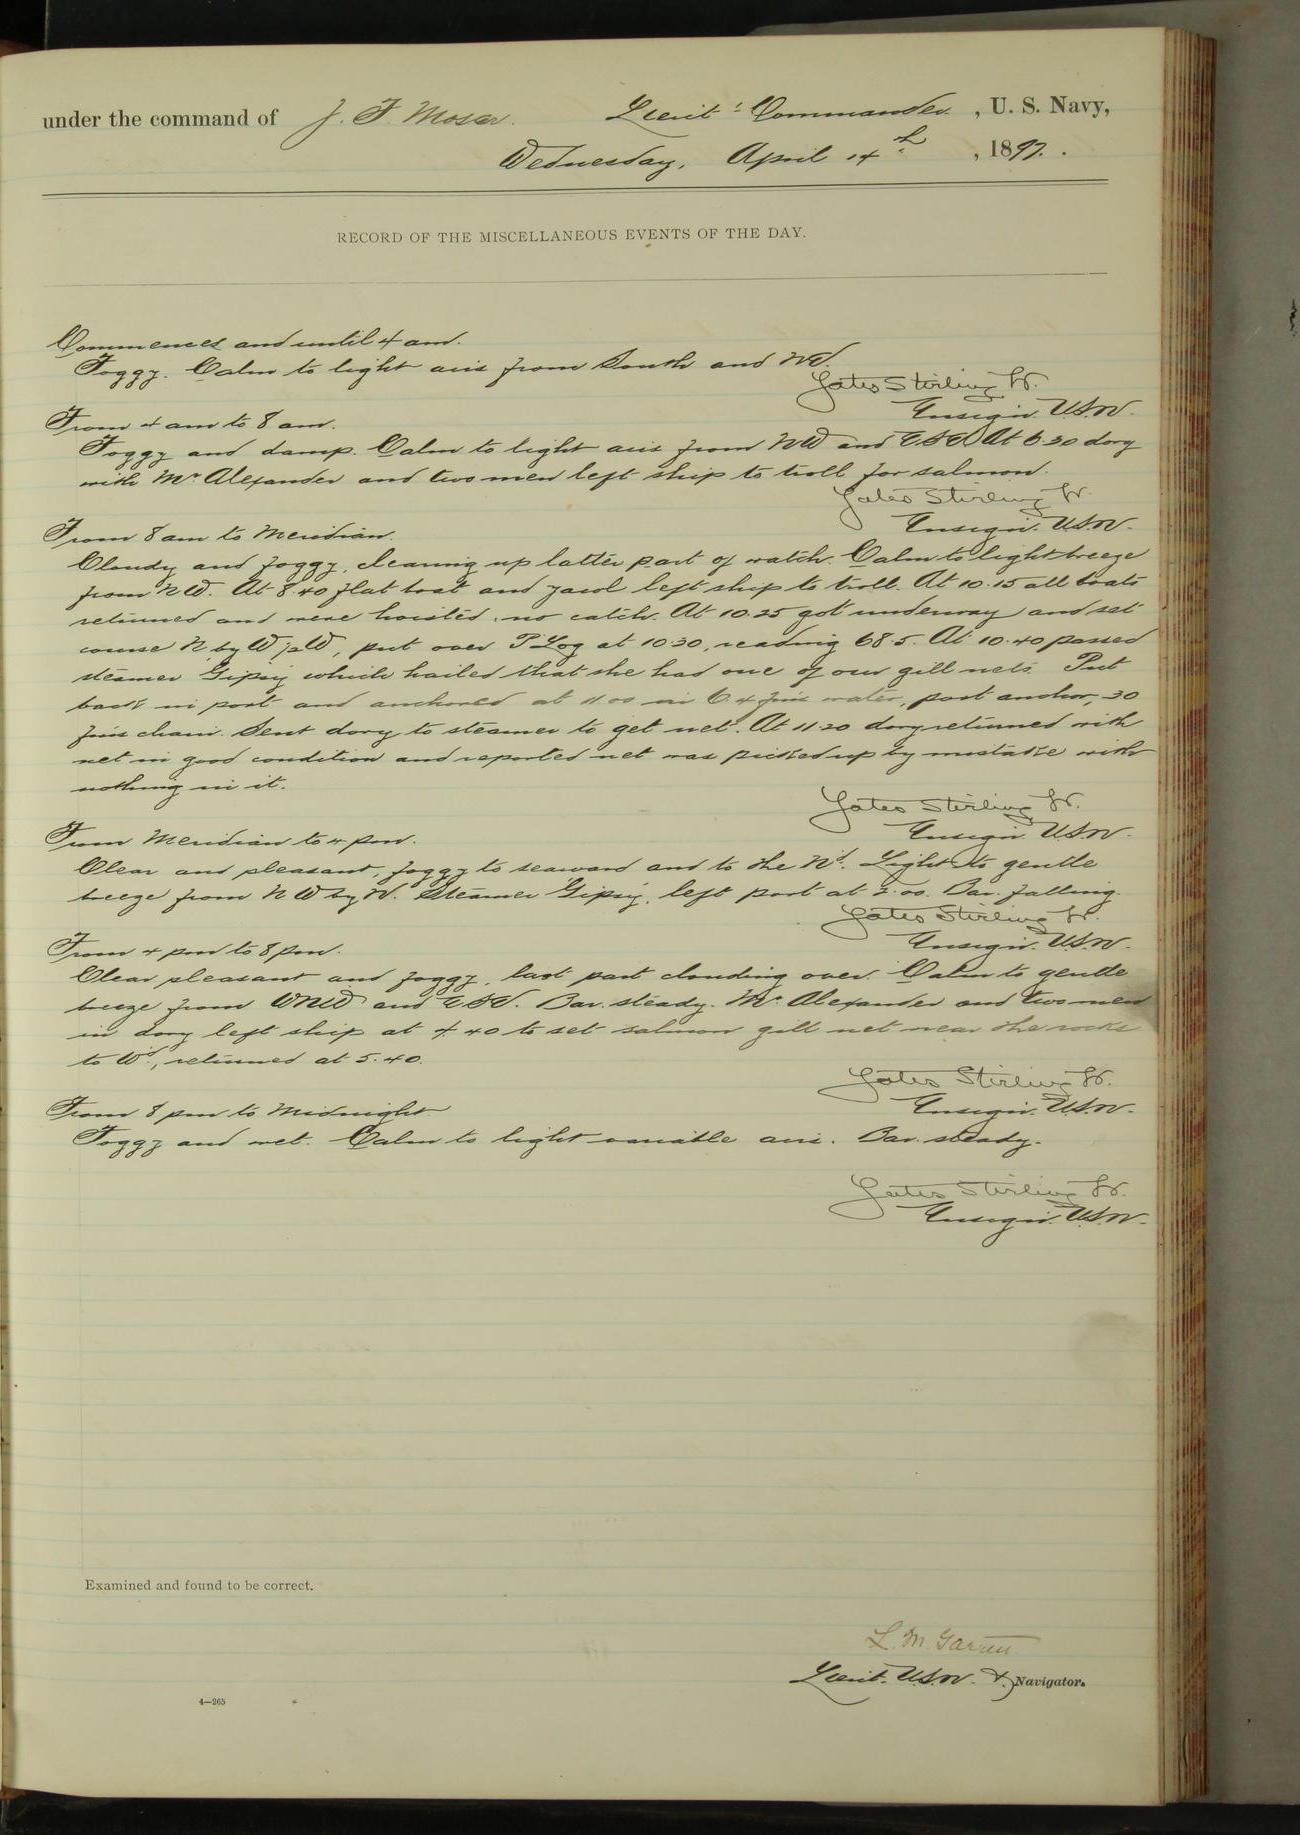 under the command of J. F. Moser. Lieut: Commander , U. S. Navy,
Wednesday, April 14th , 1897.
RECORD OF THE MISCELLANEOUS EVENTS OF THE DAY.
Commences and until 4 am.
Foggy. Calm to light airs from South and NW.
Yates Stirling Jr.
Ensign. U.S.N.
From 4 am to 8 am.
Foggy and damp. Calm to light airs from NW and ESE. At 6.30 dory
with Mr Alexander and two men left ship to troll for salmon.
Yates Stirling Jr.
Ensign. U.S.N.
From 8 am to Meridian.
Cloudy and foggy, clearing up latter part of watch. Calm to light breeze
from NW. At 8.40 flat boat and yawl left ship to troll. At 10.15 all boats
returned and were hoisted, no catch. At 10.25 got underway and set
course N by W ½ W, put over P Log at 10.30, reading 68.5. At 10.40 passed
steamer Gipsy which hailed that she had one of our gill nets. Put
back in port and anchored at 11.00 in 6.4 fms water, port anchor, 30
fms chain. Sent dory to steamer to get net. At 11.20 dory returned with
net in good condition and reported net was picked up by mistake with
nothing in it.
Yates Stirling Jr.
Ensign U.S.N.
From Meridian to 4 pm.
Clear and pleasant, foggy to seaward and to the Nd. Light to gentle
breeze from NW by N. Steamer Gipsy, left port at 2.00. Bar. falling.
Yates Stirling Jr.
Ensign. U.S.N.
From 4 pm to 8 pm.
Clear pleasant and foggy, last part clouding over. Calm to gentle
breeze from WNW and ESE. Bar. steady. Mr Alexander and two men
in dory left ship at 4.40 to set salmon gill net near the rocks
to Wd., returned at 5.40.
Yates Stirling Jr.
Ensign. U.S.N.
From 8 pm to Midnight
Foggy and wet. Calm to light variable airs. Bar. steady.
Yates Stirling Jr.
Ensign. U.S.N.
Examined and found to be correct.
L. M. Garrett
Lieut. U.S.N. & Navigator.
4—265